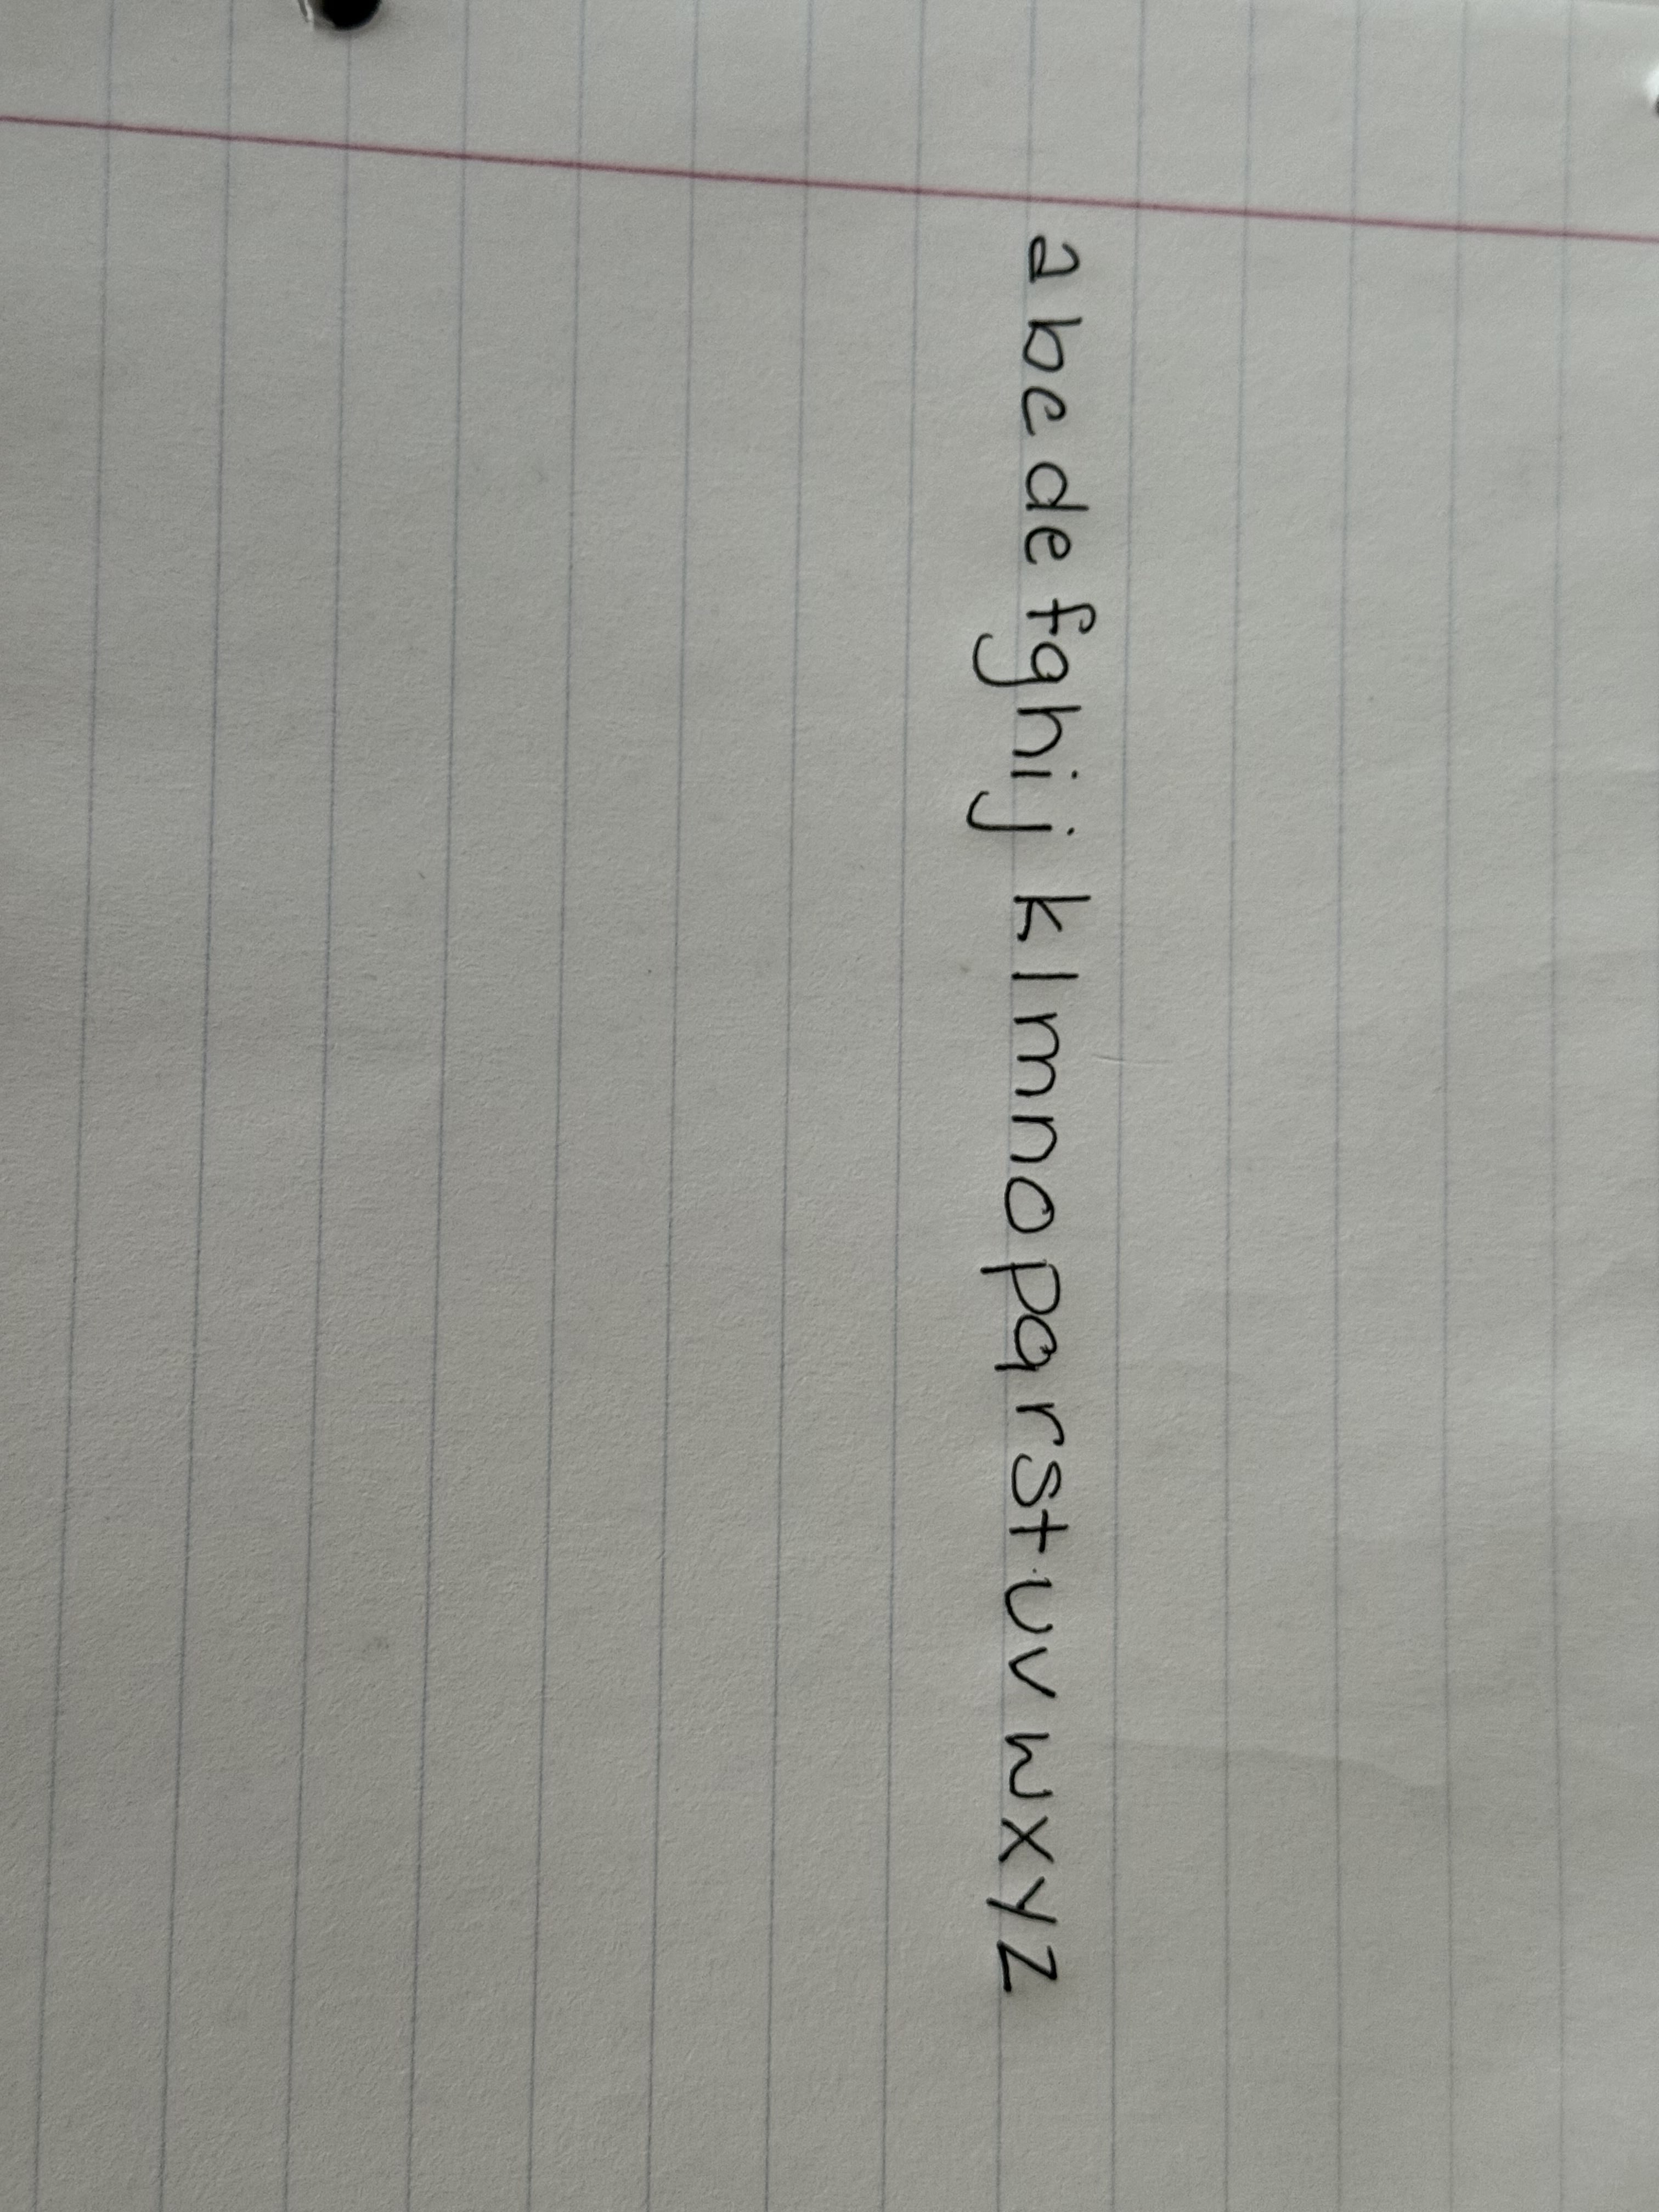 abcdefghij klmnopqrstuvwxyz